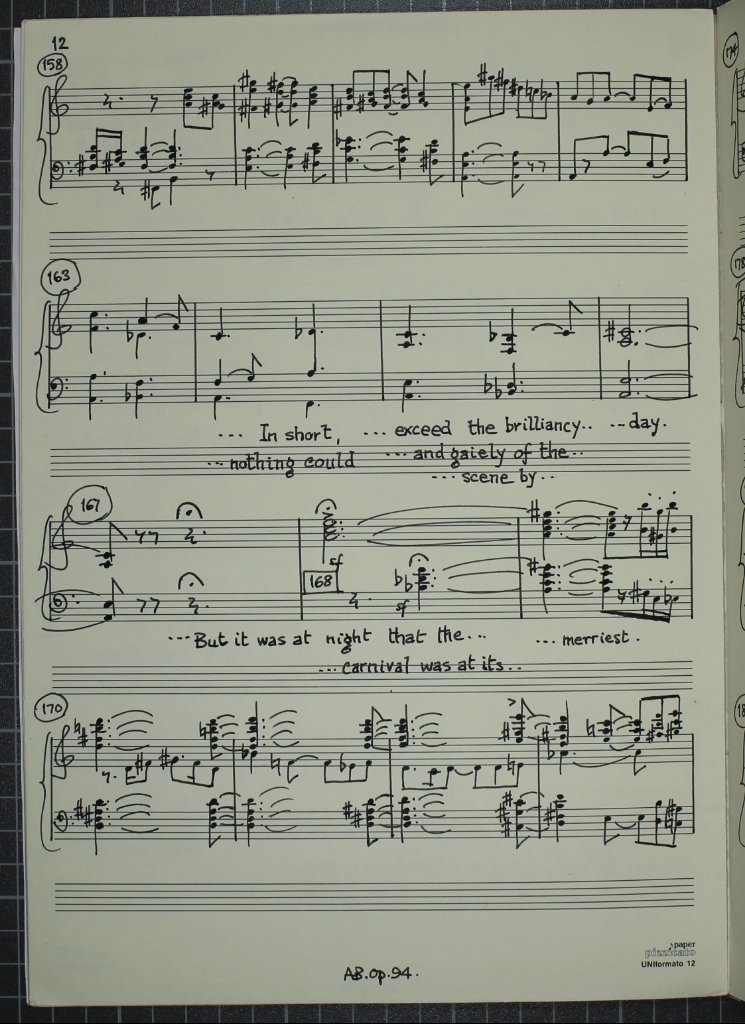 12
158
163
... In short, ... exceed the brilliancy.. ...day.
... nothing could ... and gaiely of the..
... scene by ..
167
sf
168
sf
... But it was at night that the... ... merriest .
... carnival was at its...
170
paper
pizzicato
UNIformato 12
AB.op.94.
174
178